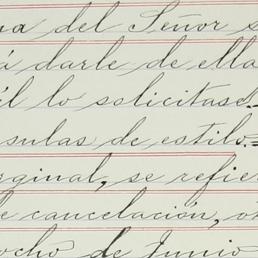 na del Señor s
á darle de ella
él lo solicitase.
sulas de estilo.
rginal, se refier
e cancelación, ó
ocho de Junio